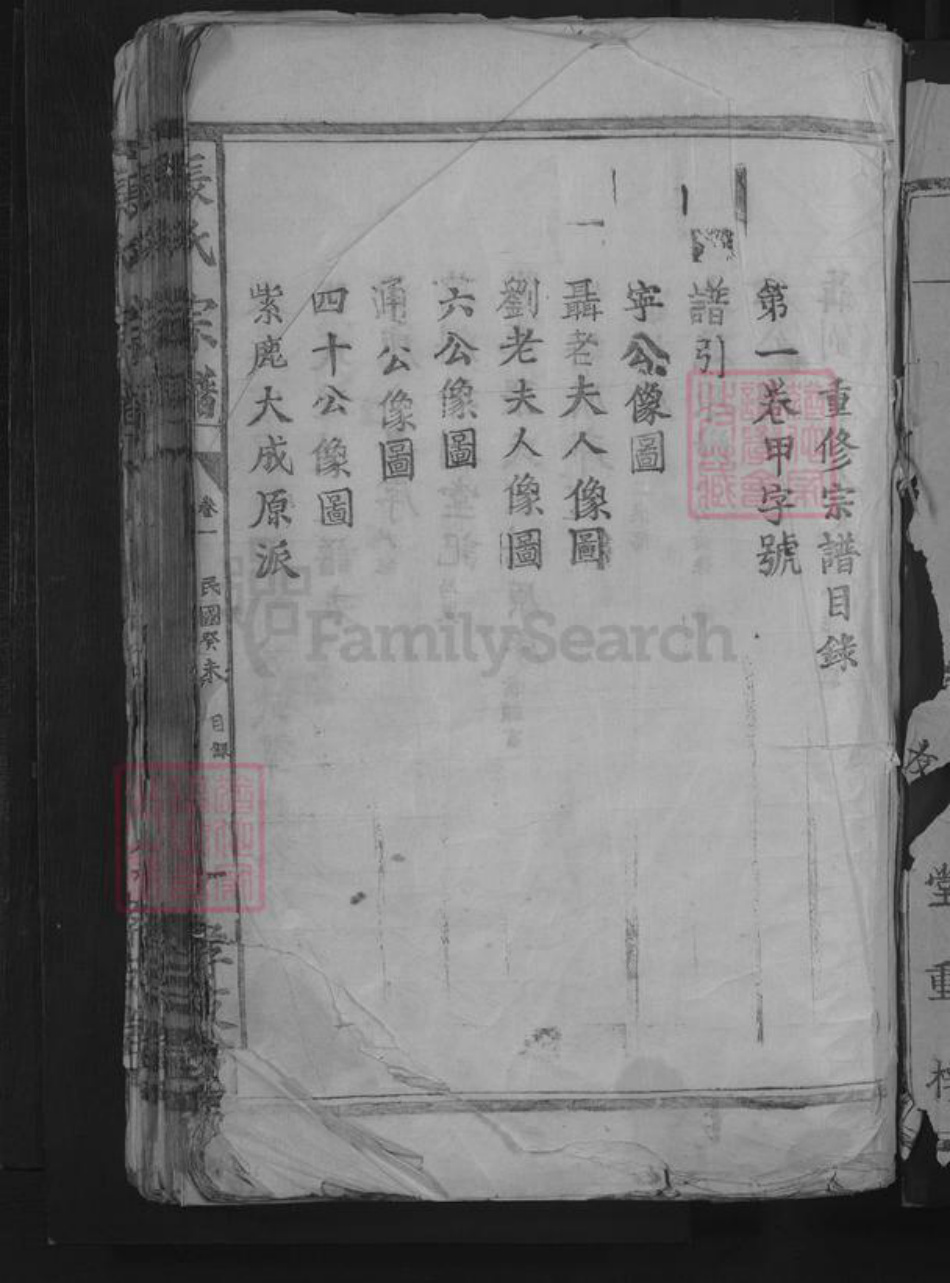 重修宗譜目錄
第一卷甲字號
譜引
寜公像圖
聶老夫人像圖
劉老夫人像圖
六公像圖
通公像圖
四十公像圖
紫鹿大成原派
張氏宗譜
卷一
民國癸未
目録
一
堂重
FamilySearch